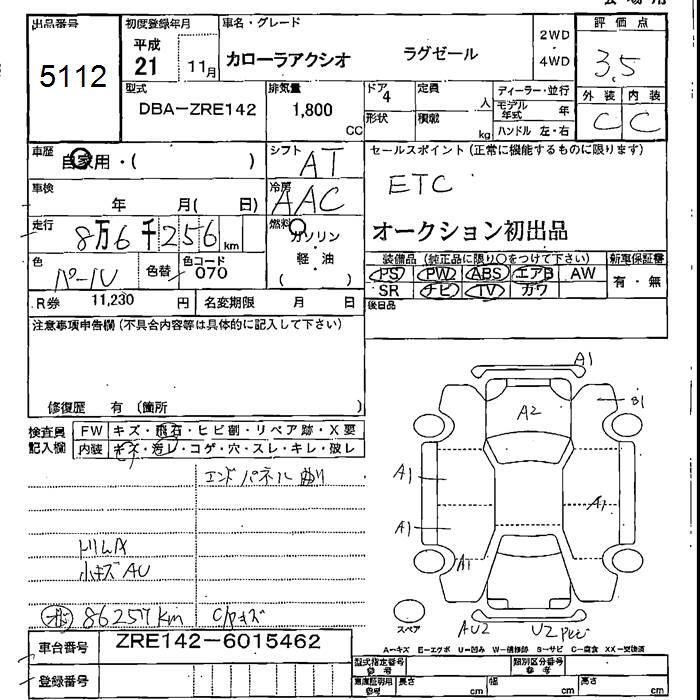 出品番号
5112
初度登録年月
平成
21 11月
車名・グレード
カローラアクシオ ラグゼール
2WD
4WD
評価点
3.5
外装 内装
C C
型式
DBA-ZRE142
排気量
1,800
CC
ドア
4
定員
人
形状
積載
kg
ディーラー・並行
モデル年式 年
ハンドル 左・右
車歴
自家用・( )
シフト
AT
セールスポイント(正常に機能するものに限ります)
ETC
オークション初出品
車検
年 月( 日)
冷房
AAC
走行
8万6千256km
燃料
ガソリン
軽・油
( )
色
パール
色替
色コード
070
装備品(純正品に限り○をつけて下さい)
新車保証書
PS PW ABS エアB AW
有・無
SR ナビ TV カワ
R券 11,230 円
名変期限 月 日
後日品
注意事項申告欄(不具合内容等は具体的に記入して下さい)
修復歴 有(箇所 )
検査員
記入欄
FW キズ・飛石・ヒビ割・リペア跡・X要
内装 キズ・汚レ・コゲ・穴・スレ・キレ・破レ
エンドパネル曲り
トリムA
小キズAU
86257km
A1
A2
B1
A1
A1
A1
A1
スペア
AU2
U2
A-キズ E-エクボ U-凹み W-補修跡 S-サビ C-腐食 XX-交換済
車台番号
ZRE142-6015462
登録番号
型式指定番号
参考
類別区分番号
参考
車庫証明用
参考
長さ cm
幅 cm
高さ cm